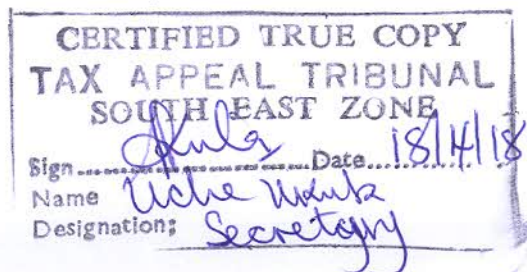 CERTIFIED TRUE COPY
TAX APPEAL TRIBUNAL
SOUTH EAST ZONE
Sign Date 18/4/18
Name Uche
Designation: Secretary